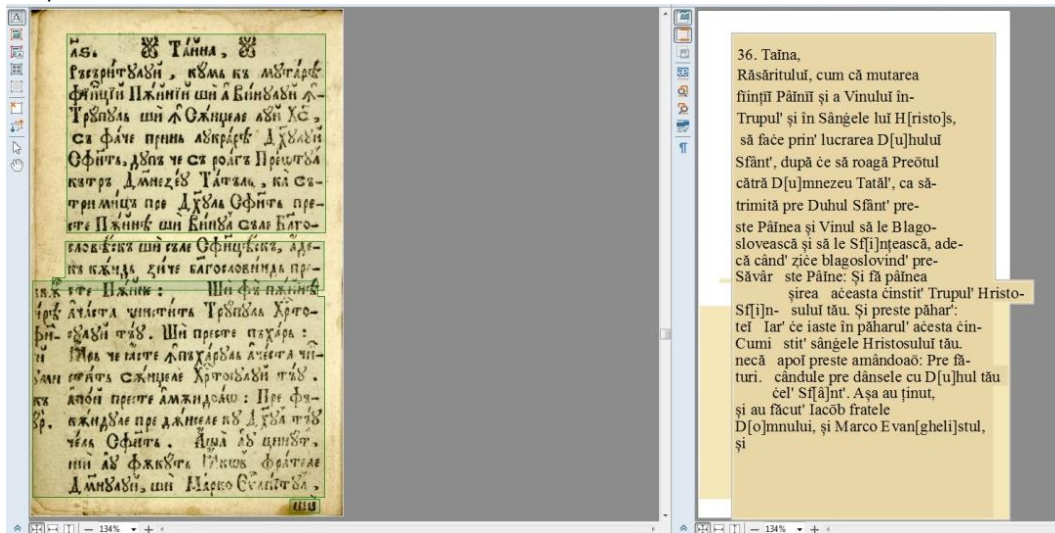 лѕ. Таина,
Рꙋсъритꙋлꙋй, кꙋмь къ мꙋтарѣ
фїинцїй Пѫйнїй ши а Винꙋлꙋй ꙟ-
Трꙋпꙋль ши ꙟ Сѫнџеле лꙋй Хс,
съ фаче принь лꙋкрарѣ Дхꙋлꙋй
Сфнть, дꙋпъ че съ роагъ Преѡтꙋл
кътръ Дмнезеꙋ Татъль, ка съ-
тримицъ пре Дхꙋль Сфнть пре-
сте Пѫйнѣ ши Винꙋл съле Благо-
словѣскъ ши съле Сфинцѣскъ, аде-
къ кѫндь зиче благословиндь пре-
сте Пѫйне: Ши фъ пѫйнѣ
ачаста чинстить Трꙋпꙋль Хрто-
сꙋлꙋй тъꙋ. Ши престе пъхарь:
Ꙗрь че ꙗсте ꙟпъхарꙋль ачеста чин-
стить сѫнџеле Хртосꙋлꙋй тъꙋ.
апой престе амѫндоаѡ: Пре фъ-
кѫндꙋле пре дѫнселе кꙋ Дхꙋл тъꙋ
чель Сфнть. Аша аꙋ цинꙋт,
ши аꙋ фъкꙋть Іакѡв фрателе
Дмнꙋлꙋй, ши Марко Еѵлистꙋл,
ши
134%
36. Taĭna,
Răsărituluĭ, cum că mutarea
fiinţiĭ Pâĭniĭ şi a Vinuluĭ în-
Trupul' şi în Sânġele luĭ H[risto]s,
să faċe prin' lucrarea D[u]huluĭ
Sfânt', după ċe să roagă Preŏtul
cătră D[u]mnezeu Tatăl', ca să-
trimită pre Duhul Sfânt' pre-
ste Pâĭnea şi Vinul să le Blago-
slovească şi să le Sf[i]nţească, ade-
că când' ziċe blagoslovind' pre-
Săvâr ste Pâĭne: Şi fă pâĭnea
şirea aċeasta ċinstit' Trupul' Hristo-
Sf[i]n- suluĭ tău. Şi preste păhar':
teĭ Iar' ċe iaste în păharul' aċesta ċin-
Cumi stit' sânġele Hristosuluĭ tău.
necă apoĭ preste amândoaŏ: Pre fă-
turi. cândule pre dânsele cu D[u]hul tău
ċel' Sf[â]nt'. Aşa au ţinut,
şi au făcut' Iacŏb fratele
D[o]mnului, şi Marco Evan[gheli]stul,
şi
134%